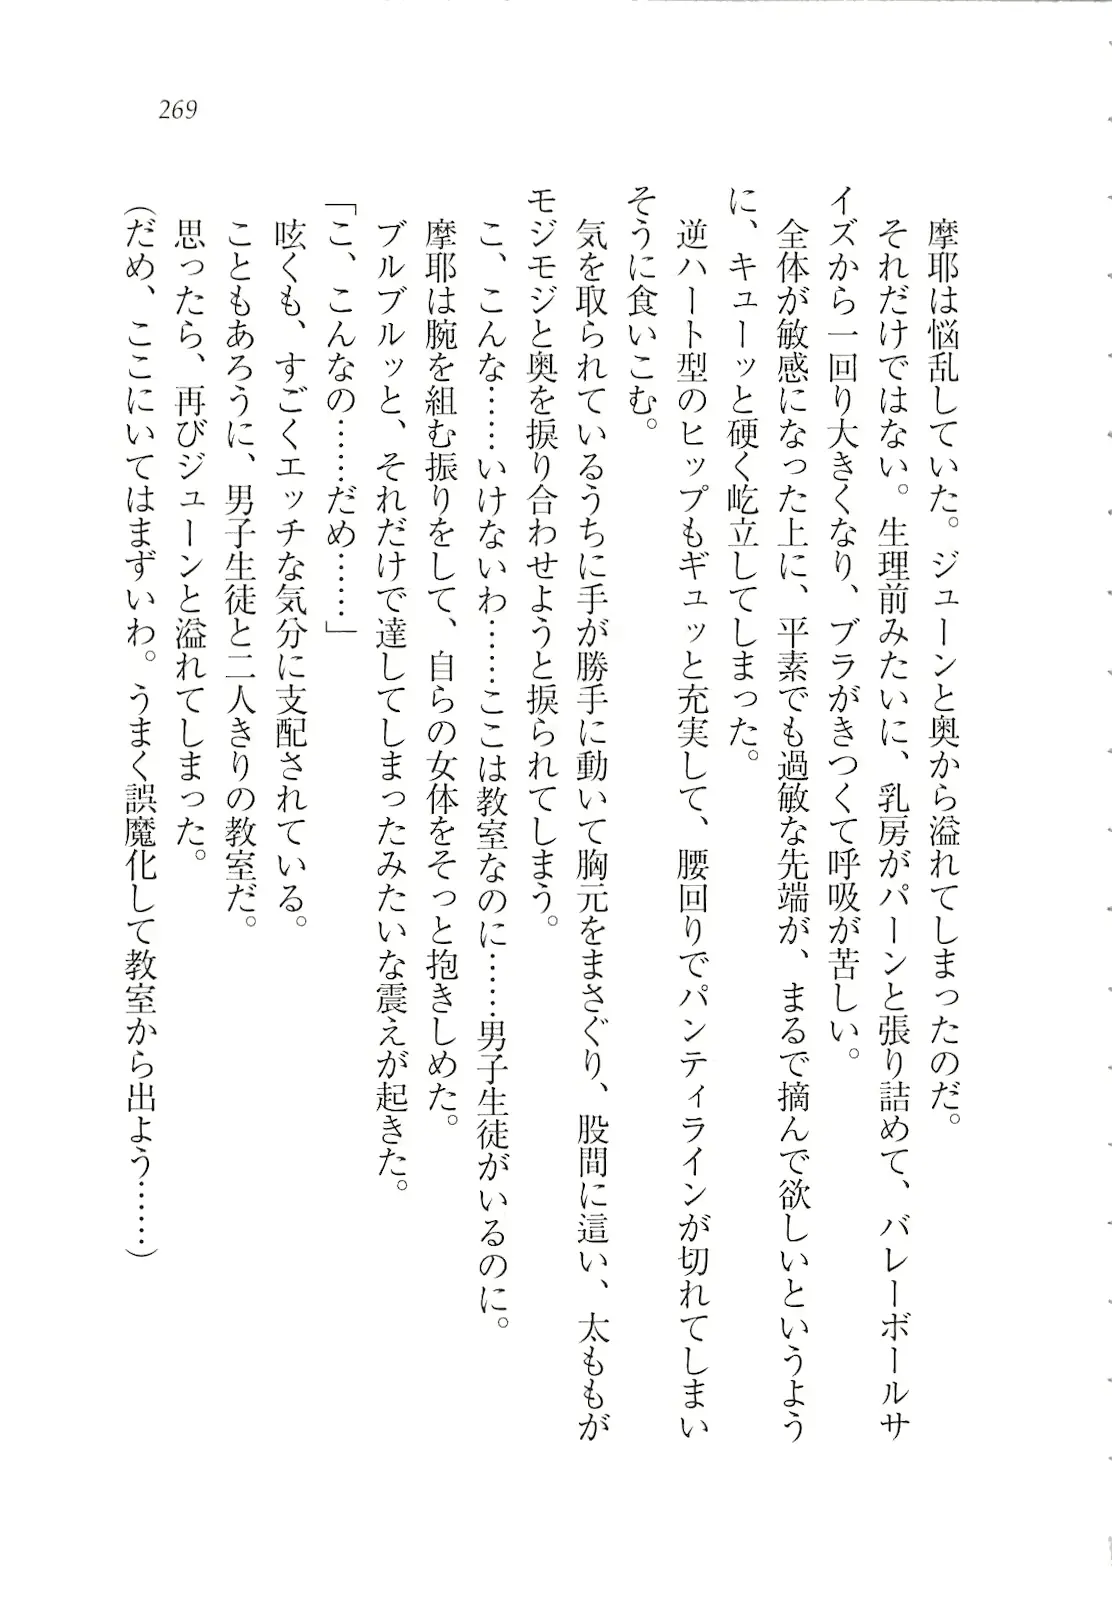 269
摩耶は悩乱していた。ジューンと奥から溢れてしまったのだ。
それだけではない。生理前みたいに、乳房がパーンと張り詰めて、バレーボールサ
イズから一回り大きくなり、ブラがきつくて呼吸が苦しい。
全体が敏感になった上に、平素でも過敏な先端が、まるで摘んで欲しいというよう
に、キューッと硬く屹立してしまった。
逆ハート型のヒップもギュッと充実して、腰回りでパンティラインが切れてしまい
そうに食いこむ。
気を取られているうちに手が勝手に動いて胸元をまさぐり、股間に這い、太ももが
モジモジと奥を捩り合わせようと捩られてしまう。
こ、こんな……いけないわ……ここは教室なのに……男子生徒がいるのに。
摩耶は腕を組む振りをして、自らの女体をそっと抱きしめた。
ブルブルッと、それだけで達してしまったみたいな震えが起きた。
「こ、こんなの……だめ……」
呟くも、すごくエッチな気分に支配されている。
こともあろうに、男子生徒と二人きりの教室だ。
思ったら、再びジューンと溢れてしまった。
（だめ、ここにいてはまずいわ。うまく誤魔化して教室から出よう……）